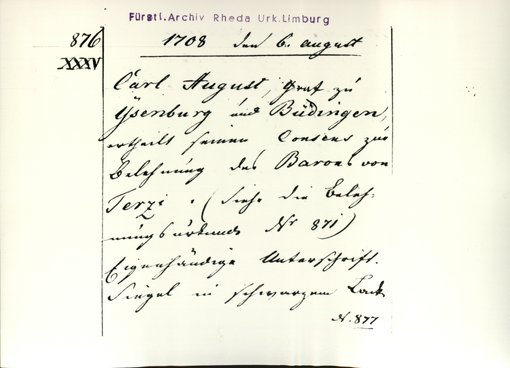 Fürstl. Archiv Rheda Urk. Limburg
876
XXXV
1708 den 6. august
Carl August, Graf zu
Ysenburg und Büdingen,
ertheilt seinen Consens zur
Belehnung des Barons von
Terzi. (Siehe die Beleh-
nungsurkunde Nr 871)
Eigenhändige Unterschrift.
Siegel in schwarzem Lack
N. 877